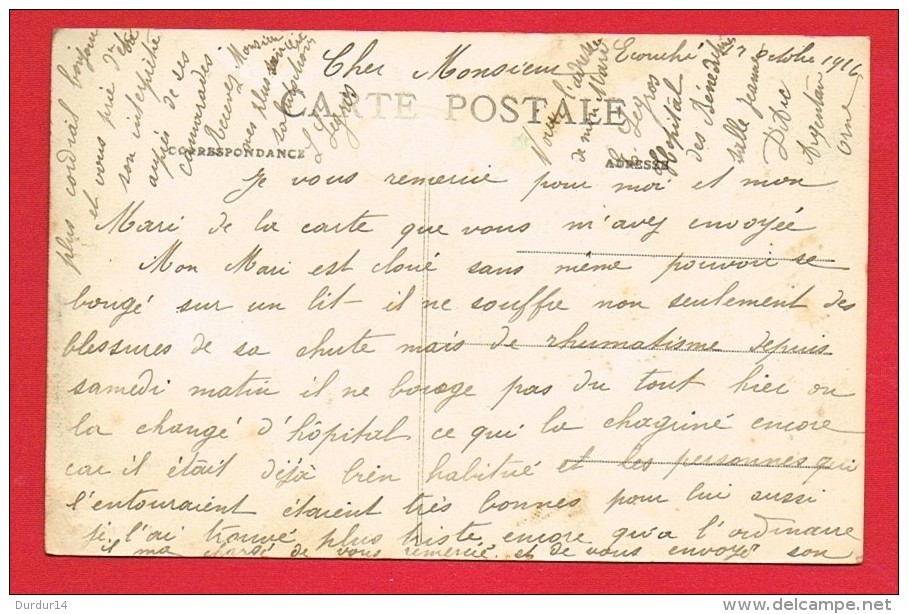 Cher Monsieur
Ecouché 17 octobre 1916
CARTE POSTALE
CORRESPONDANCE
ADRESSE
Je vous remercie pour moi et mon
Mari de la carte que vous m'avez envoyée
Mon Mari est cloué sans même pouvoir se
bougé sur un lit il ne souffre non seulement des
blessures de sa chute mais de rhumatisme depuis
samedi matin il ne bouge pas du tout hier on
la changé d'hôpital ce qui la chagriné encore
car il était déjà bien habitué et les personnes qui
l'entouraient étaient très bonnes pour lui aussi
je l'ai trouvé plus triste encore qu'a l'ordinaire
il ma chargé de vous remercié et de vous envoyé son
plus cordial bonjour
et vous prie d'être
son interprète
auprès de ses
camarades
Recevez Monsieur
mes plus sincère
salutations
L Legros
Voici l'adresse
de mon Mari
L. Legros
Hôpital
des Bénédictines
salle Jeanne
D'Arc
Argentan
Orne
Durdur14
http://www.delcampe.net